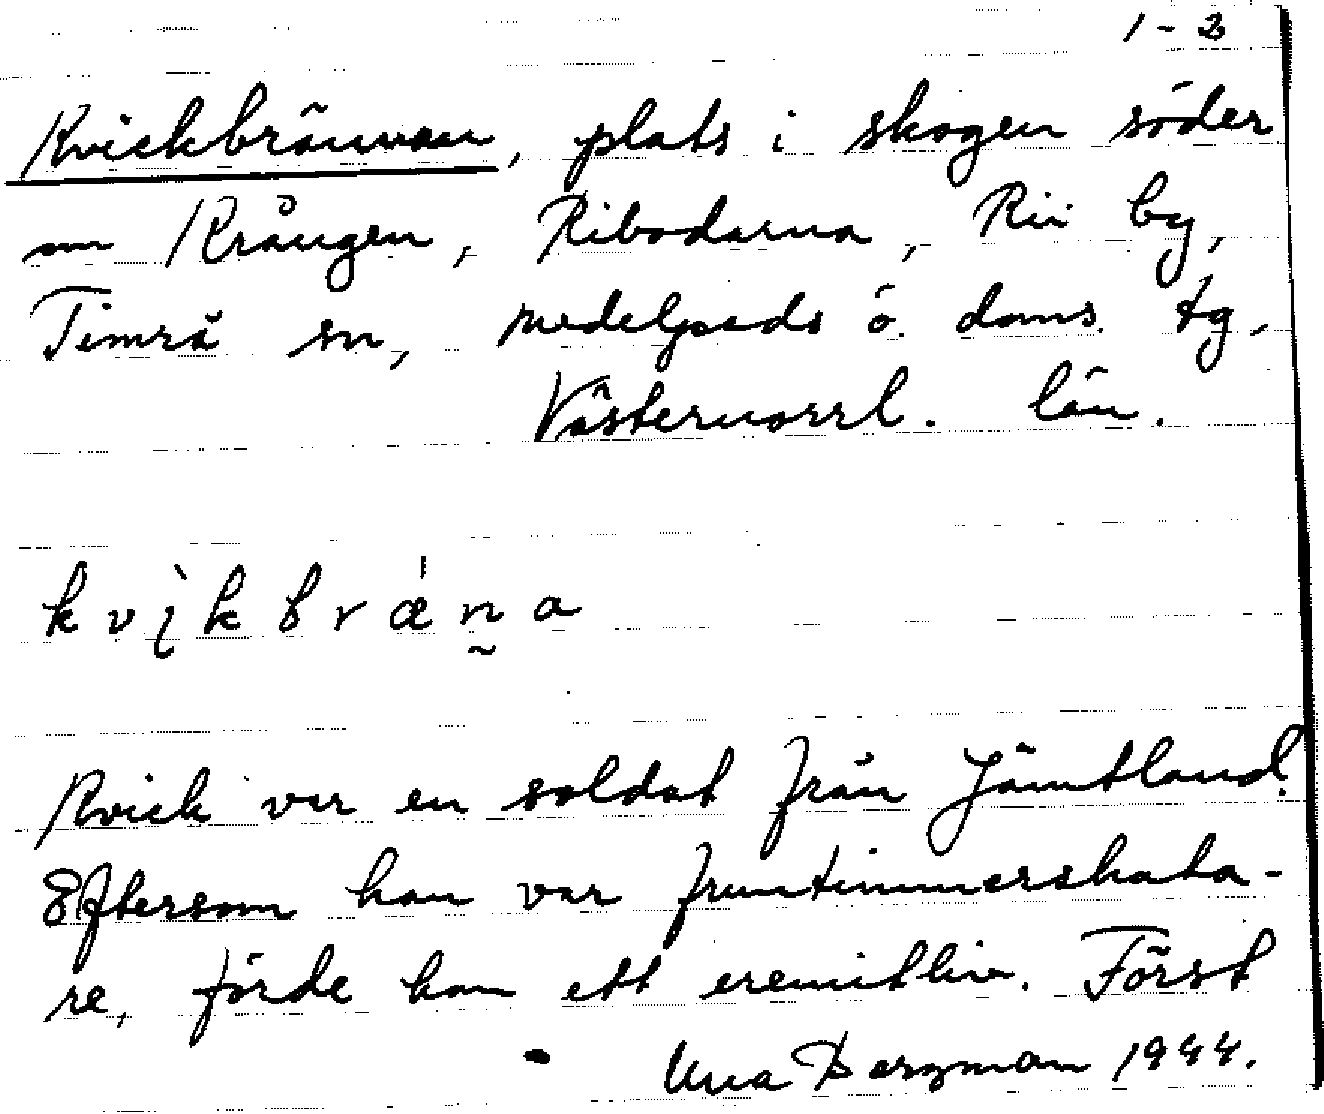 1-2
Kvickbrännan, plats i skogen söder
om Krången, Ribodarna, Rii by,
Timrå sn, Medelpads ö. doms. tg,
Västernorrl. län.
kvikbræna
Kvick var en soldat från Jämtland.
Eftersom han var fruntimmershata-
re, förde han ett eremitliv. Först
Una Bergman 1944.